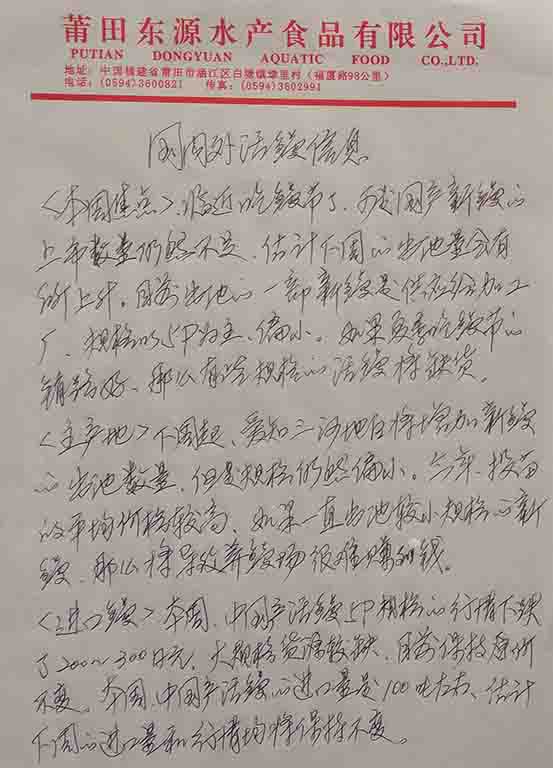 莆田东源水产食品有限公司
PUTIAN DONGYUAN AQUATIC FOOD CO.,LTD.
地址：中国福建省莆田市涵江区白塘镇埭里村（福厦路98公里）
电话：(0594)3600821 传真：(0594)3602991
周外活鳗信息
〈本周焦点〉、临近吃鳗节了、日本国产新鳗的
上市数量仍然不足、估计下周的出池量会有
所上升。目前出池的一部新鳗是供应给加工
厂、规格以5P为主、偏小。如果夏季吃鳗节的
销路好、那么有些规格的活鳗将缺货。
〈主产地〉下周起、爱知三河地区将增加新鳗
的出池数量、但是规格仍然偏小。今年、投苗
的平均价格较高、如果一直出池较小规格的新
鳗、那么将导致养鳗场很难赚到钱。
〈进口鳗〉本周、中国产活鳗5P规格的行情下跌
了200～300日元、大规格货源较缺、目前保持原价
不变。本周、中国产活鳗的进口量是100吨左右、估计
下周的进口量和行情均将保持不变。